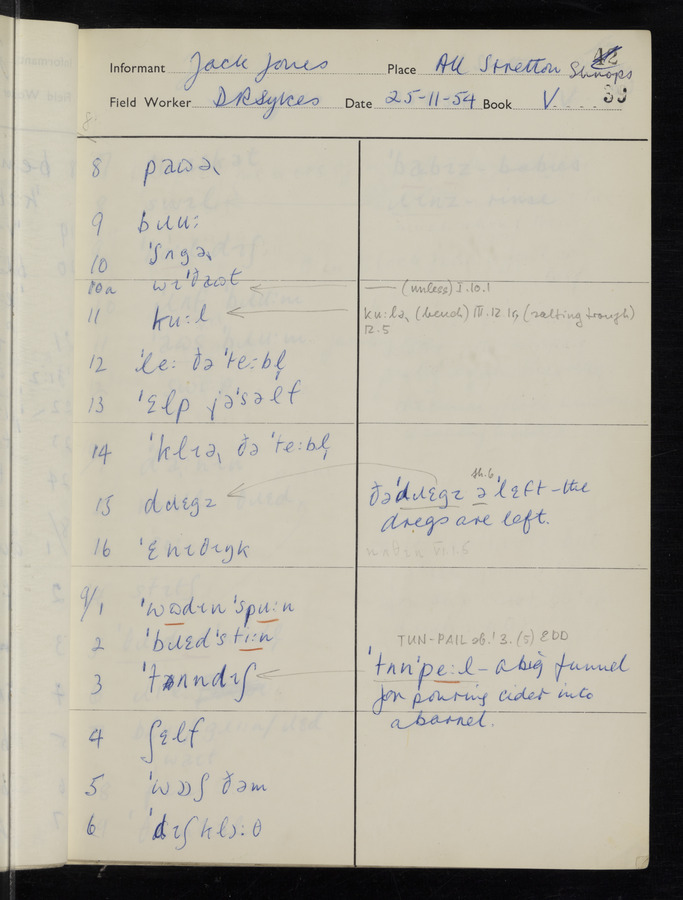 Informant Jack Jones Place All Stretton Shrops
Field Worker D R Sykes Date 25-11-54 Book V. 39
8 pauə
9 bɹuː
10 ˈʃʌgə
10a wɪˈðaʊt
— (unless) I.10.1
11 kuːl
kuːlə (bench) III.12.1, (salting trough)
12.5
12 ˈleː ðə ˈteːbl̩
13 ˈɛlp jəˈsəlf
14 ˈklɪə ðə ˈteːbl̩
15 dɹɛgz
sh.6
ðəˈdɹɛgz ə ˈlɛft – the
dregs are left.
16 ˈɛnɪðɪŋk
9/1 ˈwʊdɪn ˈspuːn
2 ˈbɹɛdˈstiːn
TUN-PAIL sb.1 3. (5) EDD
3 ˈtʌndɪʃ
ˈtʌnˈpeːl – a big funnel
for pouring cider into
a barrel.
4 ʃɛlf
5 ˈwɒʃ ðəm
6 ˈdɪʃklɔːθ